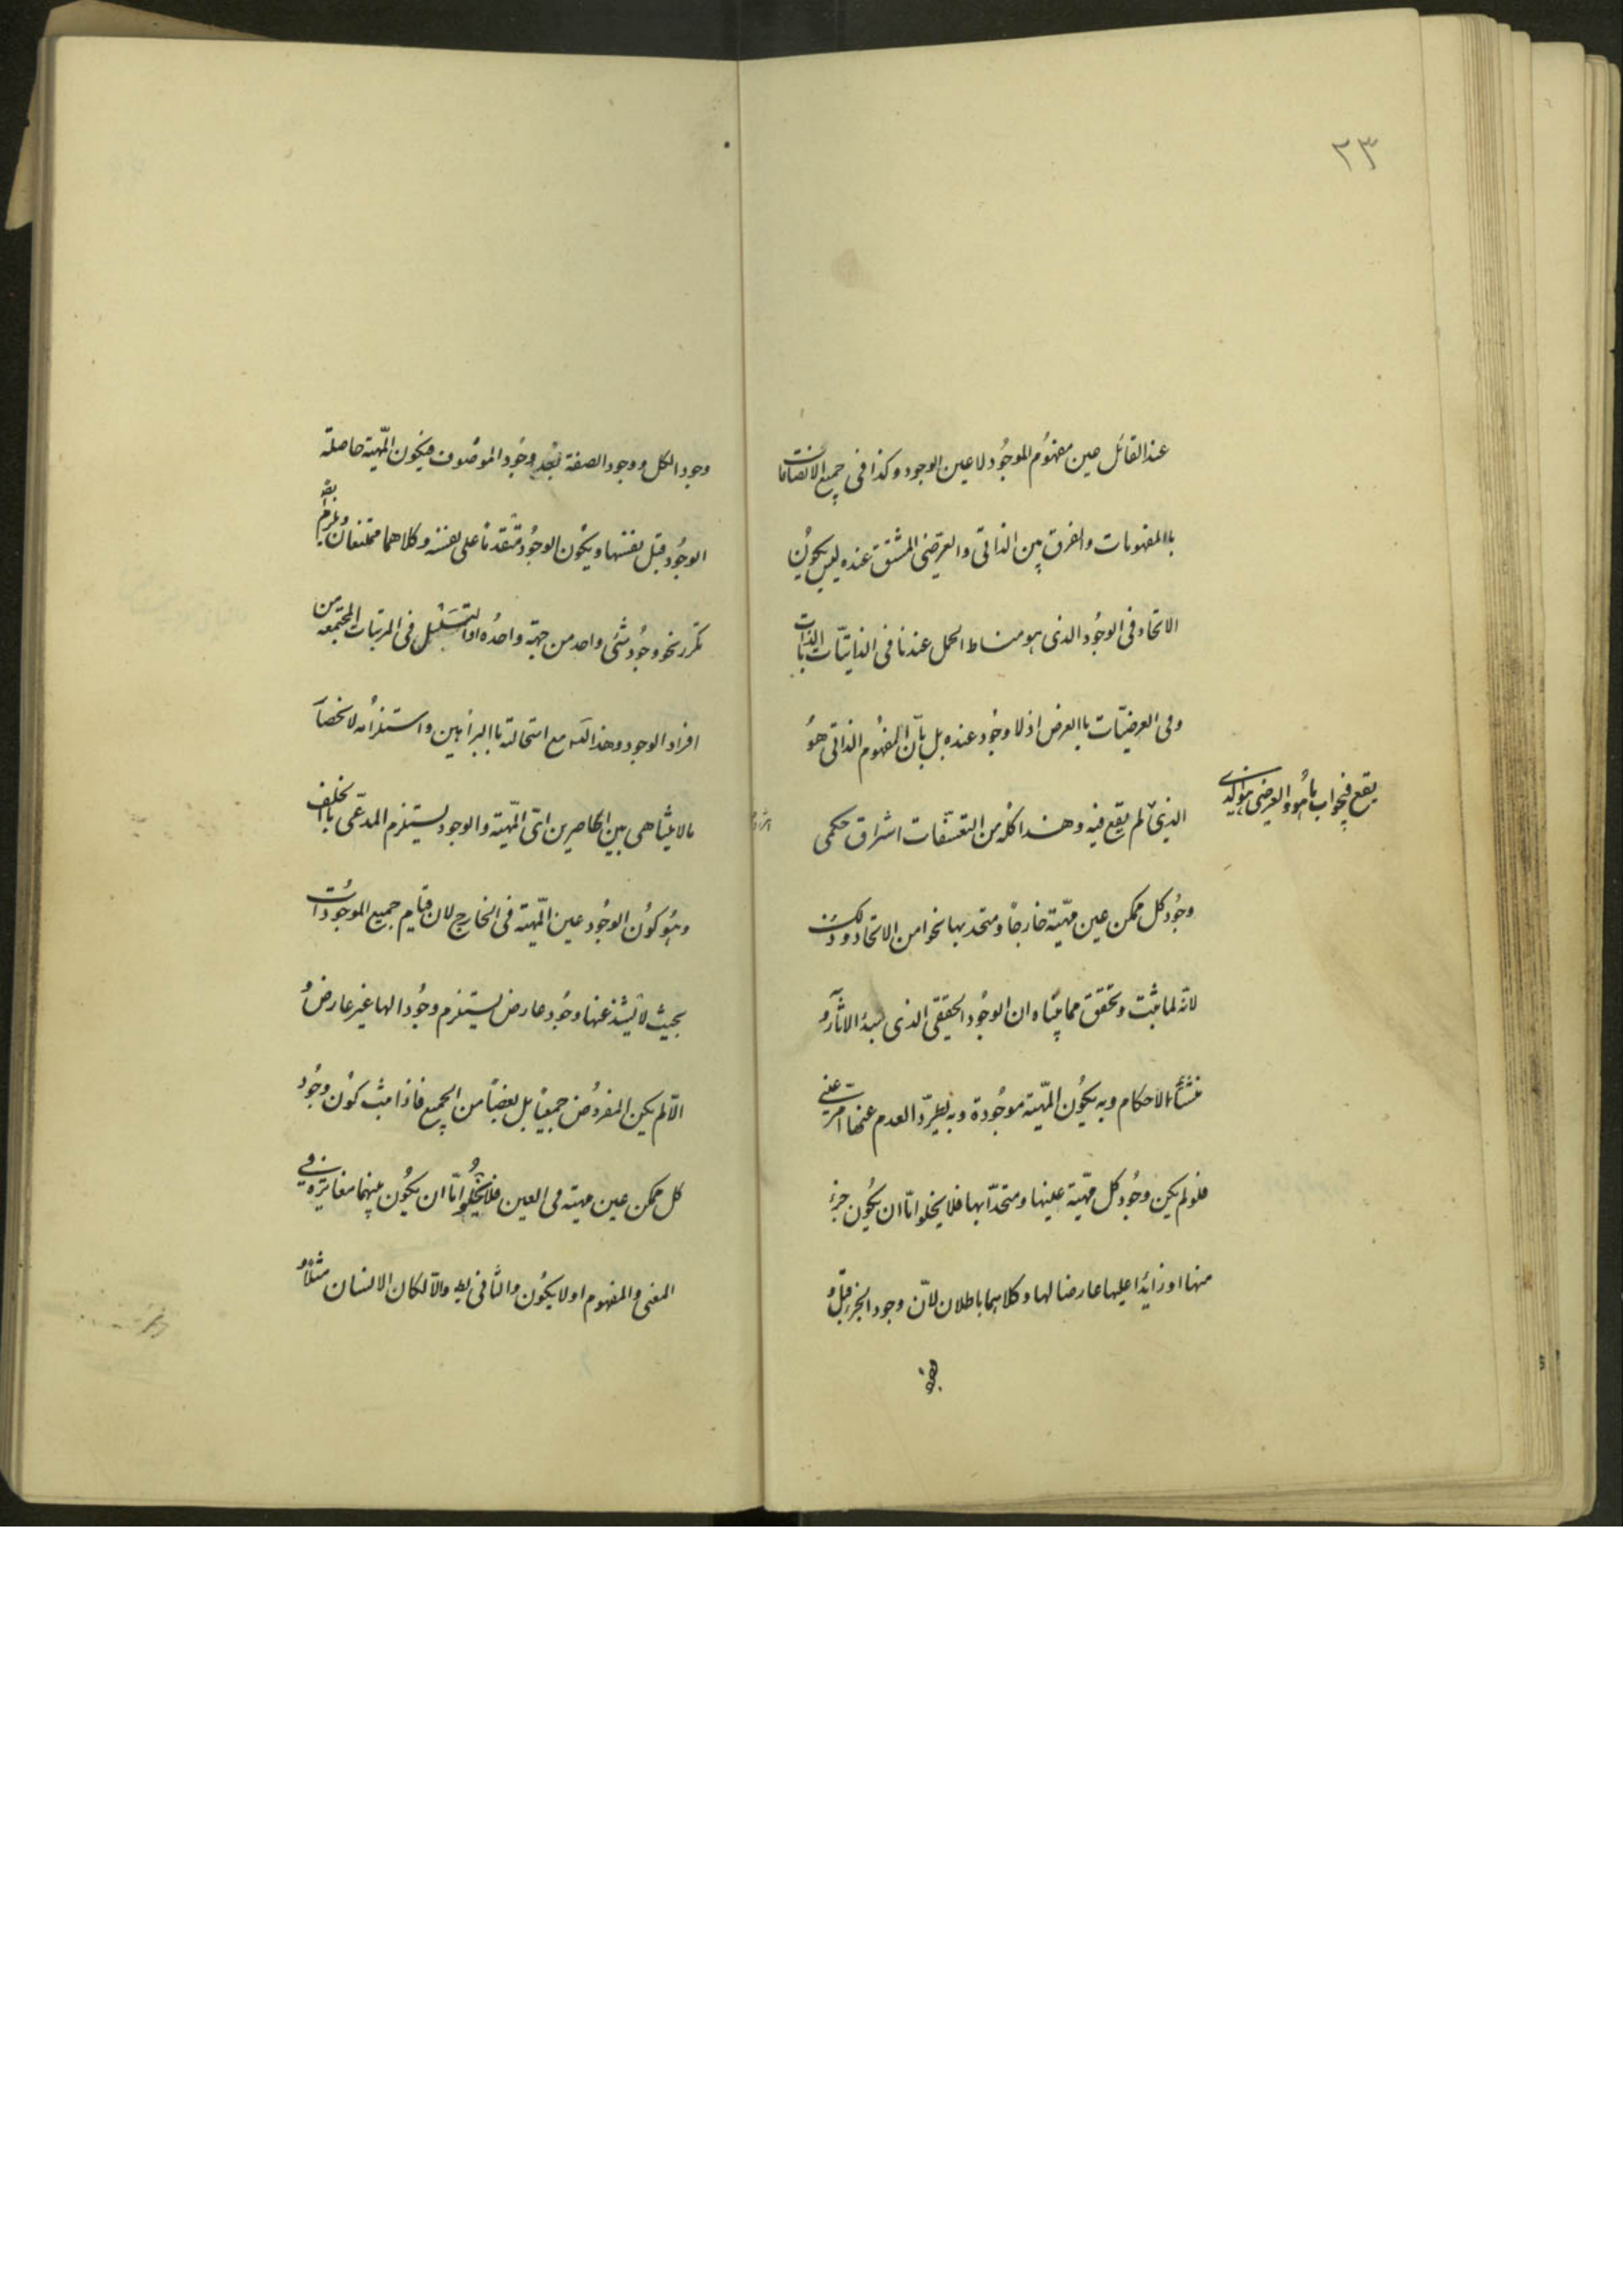 ٢٣
عند القائل عين مفهوم الموجود لا عين الوجود وكذا فى جميع الاتصافات
باالمفهومات والفرق بين الذاتى والعرضى المشتق عنده ليس بكون
الاتحاد فى الوجود الذى هو مناط الحمل عندنا فى الذاتيات باالذات
وفى العرضيات باالعرض اذ لا وجود عنده بل بان المفهوم الذاتى هو
يقع فيجواب ماهو والعرضى هو الذى
الذى لم يقع فيه وهذا كله من التعسفات اشراق حكمى
وجود كل ممكن عين مهيته خارجا ومتحد بها نحوا من الاتحاد وذلك
لانه لما ثبت وتحقق مما بيناه ان الوجود الحقيقى الذى مبدء الاثار و
منشأ الاحكام وبه يكون المهية موجودة وبه يطرد العدم عنها امر عينى
فلو لم يكن وجود كل مهية عينها ومتحدا بها فلا يخلوا اما ان يكون جزء
منها او زايدا عليها عارضا لها وكلاهما باطلان لان وجود الجزء قبل
وجود الكل ووجود الصفة بعد وجود الموصوف فيكون المهية حاصلة
الوجود قبل نفسها ويكون الوجود متقدما على نفسه وكلاهما ممتنعان ويلزم
تكرر نحو وجود شئ واحد من جهة واحده او التسلسل فى المرتبات المجتمعه من
افراد الوجود وهذا التسـ مع استحالته باالبراهين واستلزامه لانحصار
مالا يتناهى بين الحاصرين اى المهية والوجود يستلزم المدعى باالخلف
وهو كون الوجود عين المهية فى الخارج لان قيام جميع الموجودات
بحيث لا يشذ عنها وجود عارض يستلزم وجودا لها غير عارض و
الا لم يكن المفروض جميعا بل بعضا من الجميع فاذا ثبت كون وجود
كل ممكن عين مهيته فى العين فلا يخلوا اما ان يكون بينهما مغايرة فى
المعنى والمفهوم او لا يكون والثانى بط والا لكان الانسان مثلا و